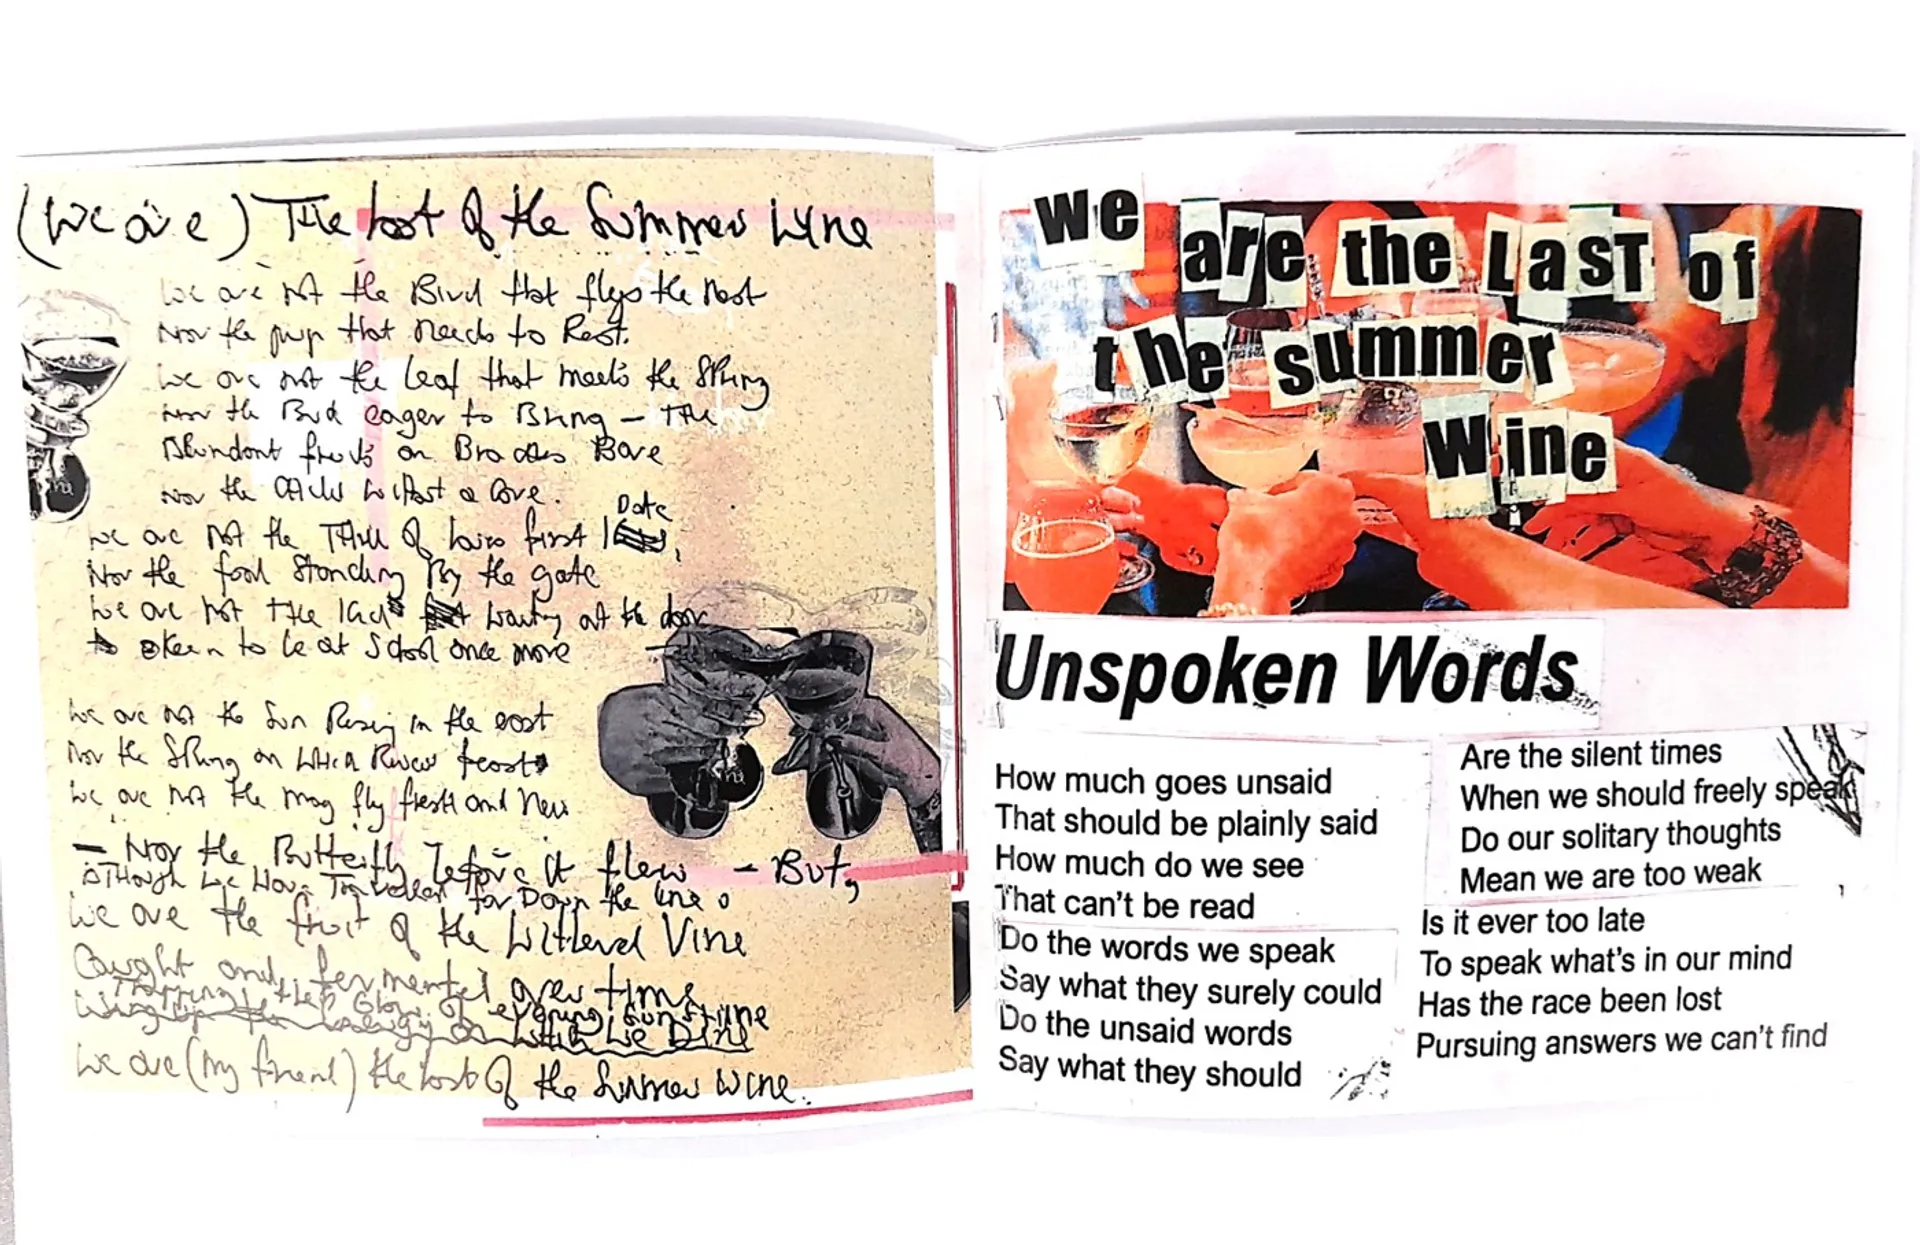 (We are) The Last of the Summer Wine
We are not the Bird that flys the Nest
Nor the pup that needs to Rest.
We are not the leaf that meets the Spring
nor the Bud eager to Bring - The
Abundant fruits on Bare
Nor the Child without a Care.
Date
We are not the Thrill of first
Nor the fool standing By the gate
We are not The waiting at the door
keen to be at School once more
We are not the Sun Rising in the east
Nor the Spring on Which River feasts
We are not the may fly fresh and New
- Nor the Butterfly before it flew - But,
Although We Have Travelled far Down the line
We are the fruit of the Withered Vine
Caught and fermented over time
Trapping the Glow of evening Sunshine
on which We Dine
We are (my friend) the last of the Summer Wine.
we
are the LasT of
the summer
Wine
Unspoken Words
How much goes unsaid
That should be plainly said
How much do we see
That can't be read
Do the words we speak
Say what they surely could
Do the unsaid words
Say what they should
Are the silent times
When we should freely speak
Do our solitary thoughts
Mean we are too weak
Is it ever too late
To speak what's in our mind
Has the race been lost
Pursuing answers we can't find